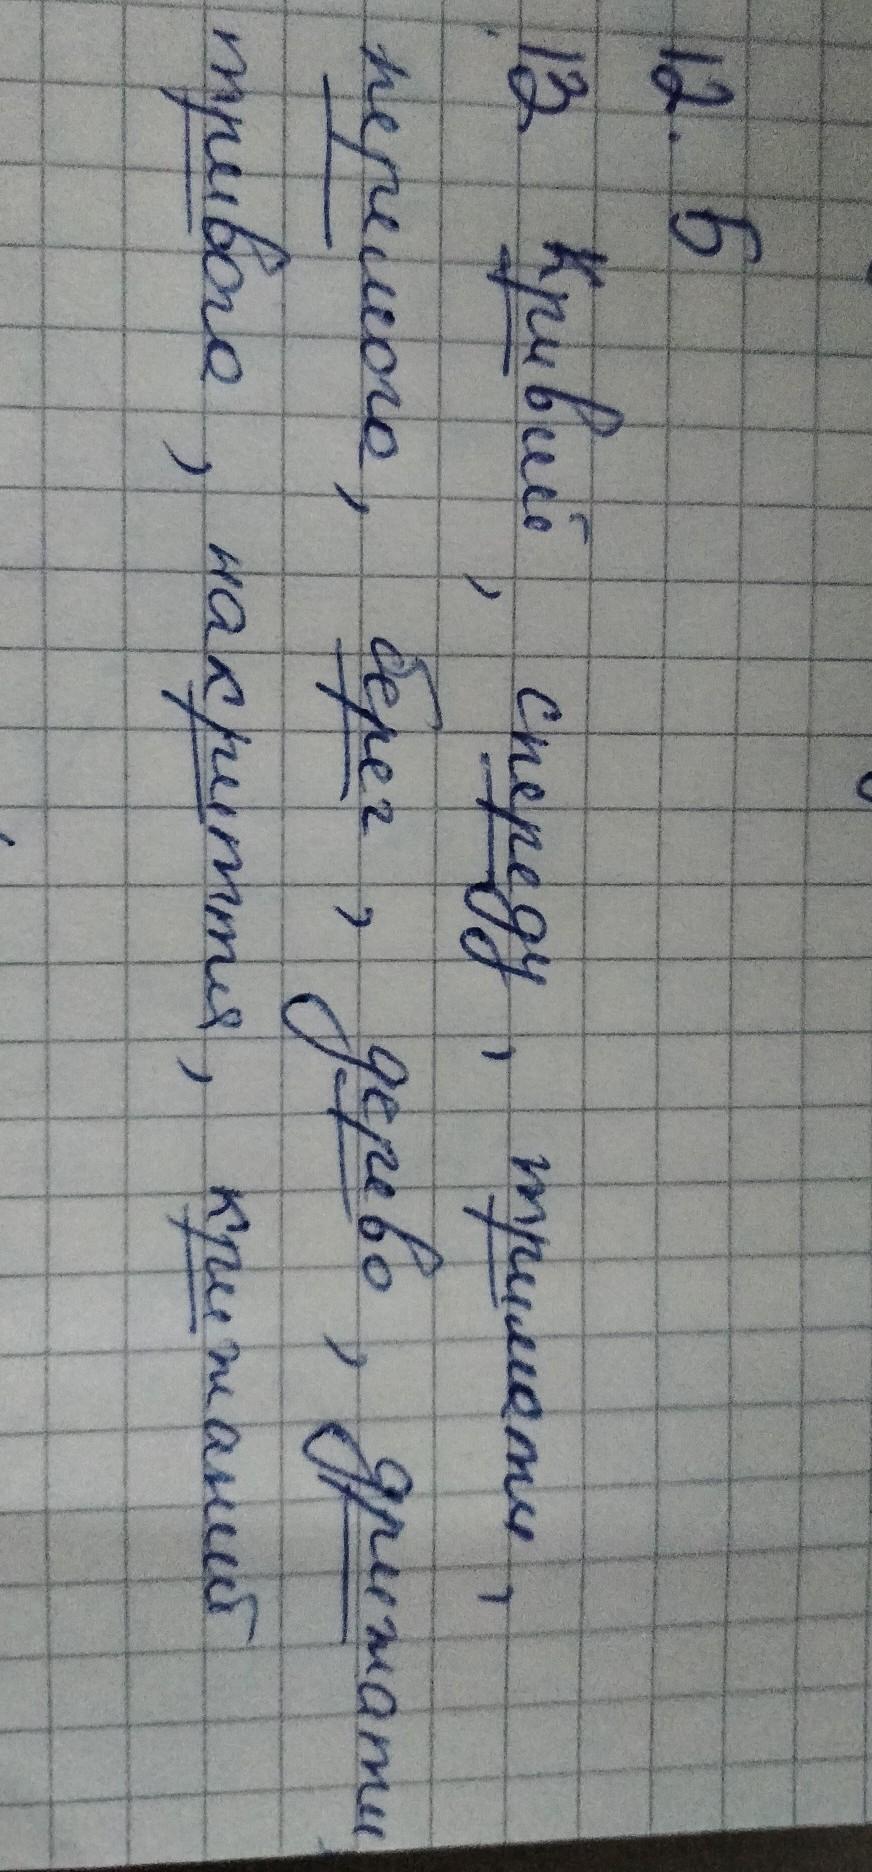 12. Б
13 Кривий, спереду, тримати,
перемога, берег, дерево, дрижати
тривога, накриття, крижаний